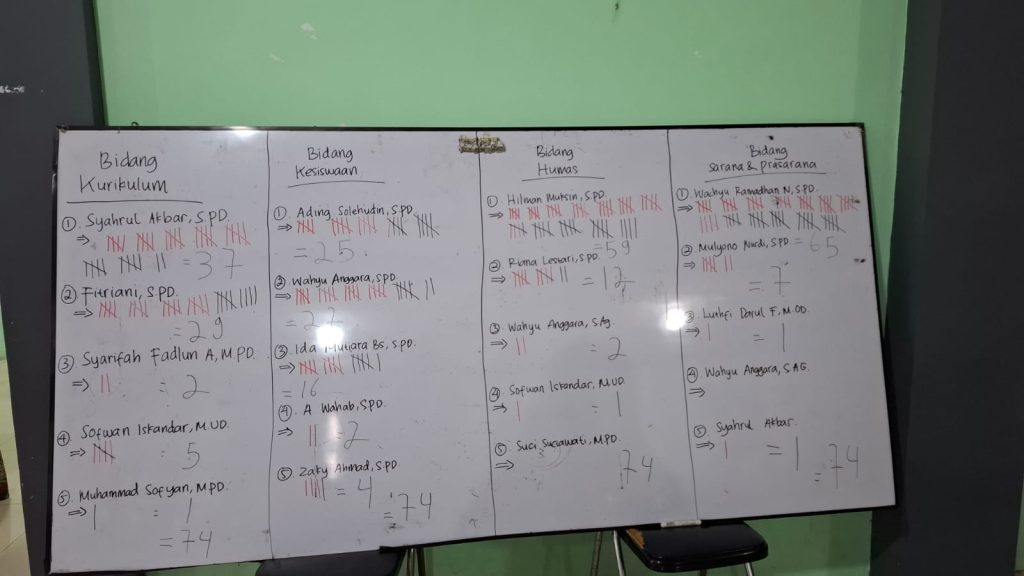 Bidang
Kurikulum
① Syahrul Akbar, S.PD.
⇒
= 37
② Fitriani, S.PD.
⇒
= 29
③ Syarifah Fadlun A, M.PD.
⇒ = 2
④ Sofwan Iskandar, M.UD.
⇒ = 5
⑤ Muhammad Sofyan, M.PD.
⇒ = 1
= 74
Bidang
Kesiswaan
① Ading Solehudin, S.PD
⇒
= 25
② Wahyu Anggara, S.PD.
⇒
= 27
③ Ida Mutiara Bs, S.PD.
⇒
= 16
④ A Wahab, S.PD.
⇒ = 2
⑤ Zaky Ahmad, S.PD
⇒ = 4
= 74
Bidang
Humas
① Hilman Muksin, S.PD.
⇒
= 59
② Riana Lestari, S.PD.
⇒ = 12
③ Wahyu Anggara, S.Ag.
⇒ = 2
④ Sofwan Iskandar, M.UD.
⇒ = 1
⑤ Suci M.PD.
⇒
74
Bidang
Sarana & Prasarana
① Wachyu Ramadhan N, S.PD.
⇒
② Mulyono Nurdi, S.PD. = 65
⇒
= 7
③ Luthfi Darul F, M.OD.
⇒ = 1
④ Wahyu Anggara, S.AG.
⇒
⑤ Syahrul Akbar.
⇒ = 1
= 74